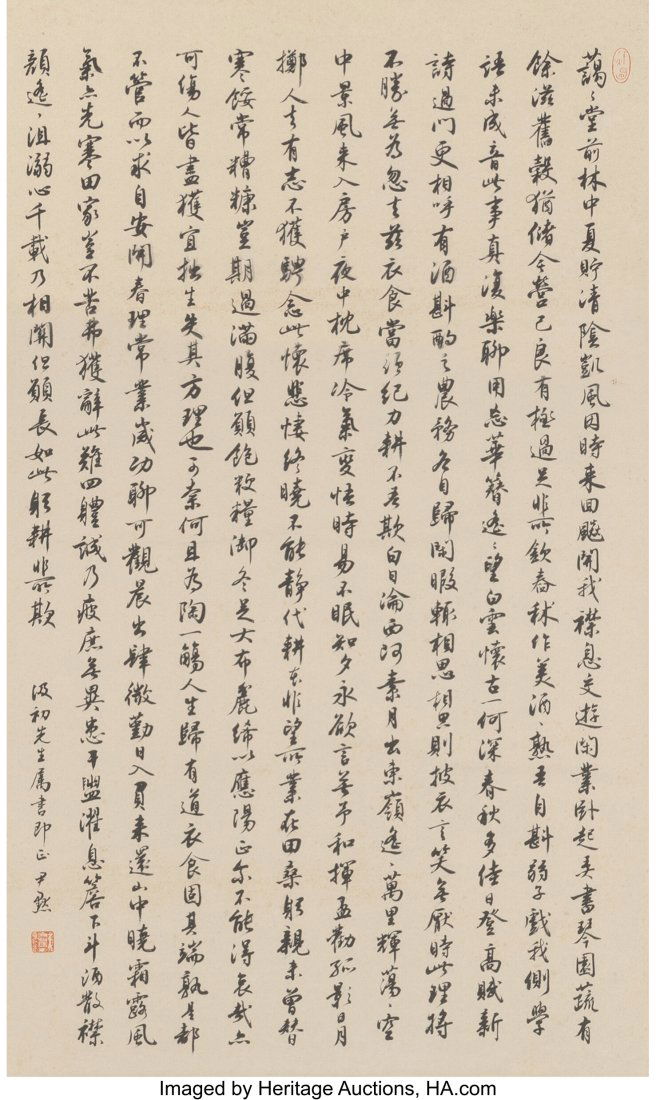 藹〻堂前林中夏貯清陰凱風因時來回飇開我襟息交遊閑業臥起弄書琴園蔬有
餘滋舊穀猶儲今營己良有極過足非所欽舂秫作美酒〻熟吾自斟弱子戲我側學
語未成音此事真復樂聊用忘華簪遙〻望白雲懷古一何深春秋多佳日登高賦新
詩過門更相呼有酒斟酌之農務各自歸閑暇輒相思相思則披衣言笑無厭時此理將
不勝無為忽去茲衣食當須紀力耕不吾欺白日淪西阿素月出東嶺遙〻萬里輝蕩〻空
中景風來入房戶夜中枕席冷氣變悟時易不眠知夕永欲言無予和揮盃勸孤影日月
擲人去有志不獲騁念此懷悲悽終曉不能靜代耕本非望所業在田桑躬親未曾替
寒餒常糟糠豈期過滿腹但願飽粳糧御冬足大布麄絺以應陽正尓不能得哀哉亦
可傷人皆盡獲宜拙生失其方理也可奈何且為陶一觴人生歸有道衣食固其端孰是都
不營而以求自安開春理常業歲功聊可觀晨出肆微勤日入負耒還山中曉霜露風
氣亦先寒田家豈不苦弗獲辭此難四體誠乃疲庶無異患干盥濯息簷下斗酒散襟
顏遙〻沮溺心千載乃相關但願長如此躬耕非所歎
汲初先生屬書即正尹默
Imaged by Heritage Auctions, HA.com